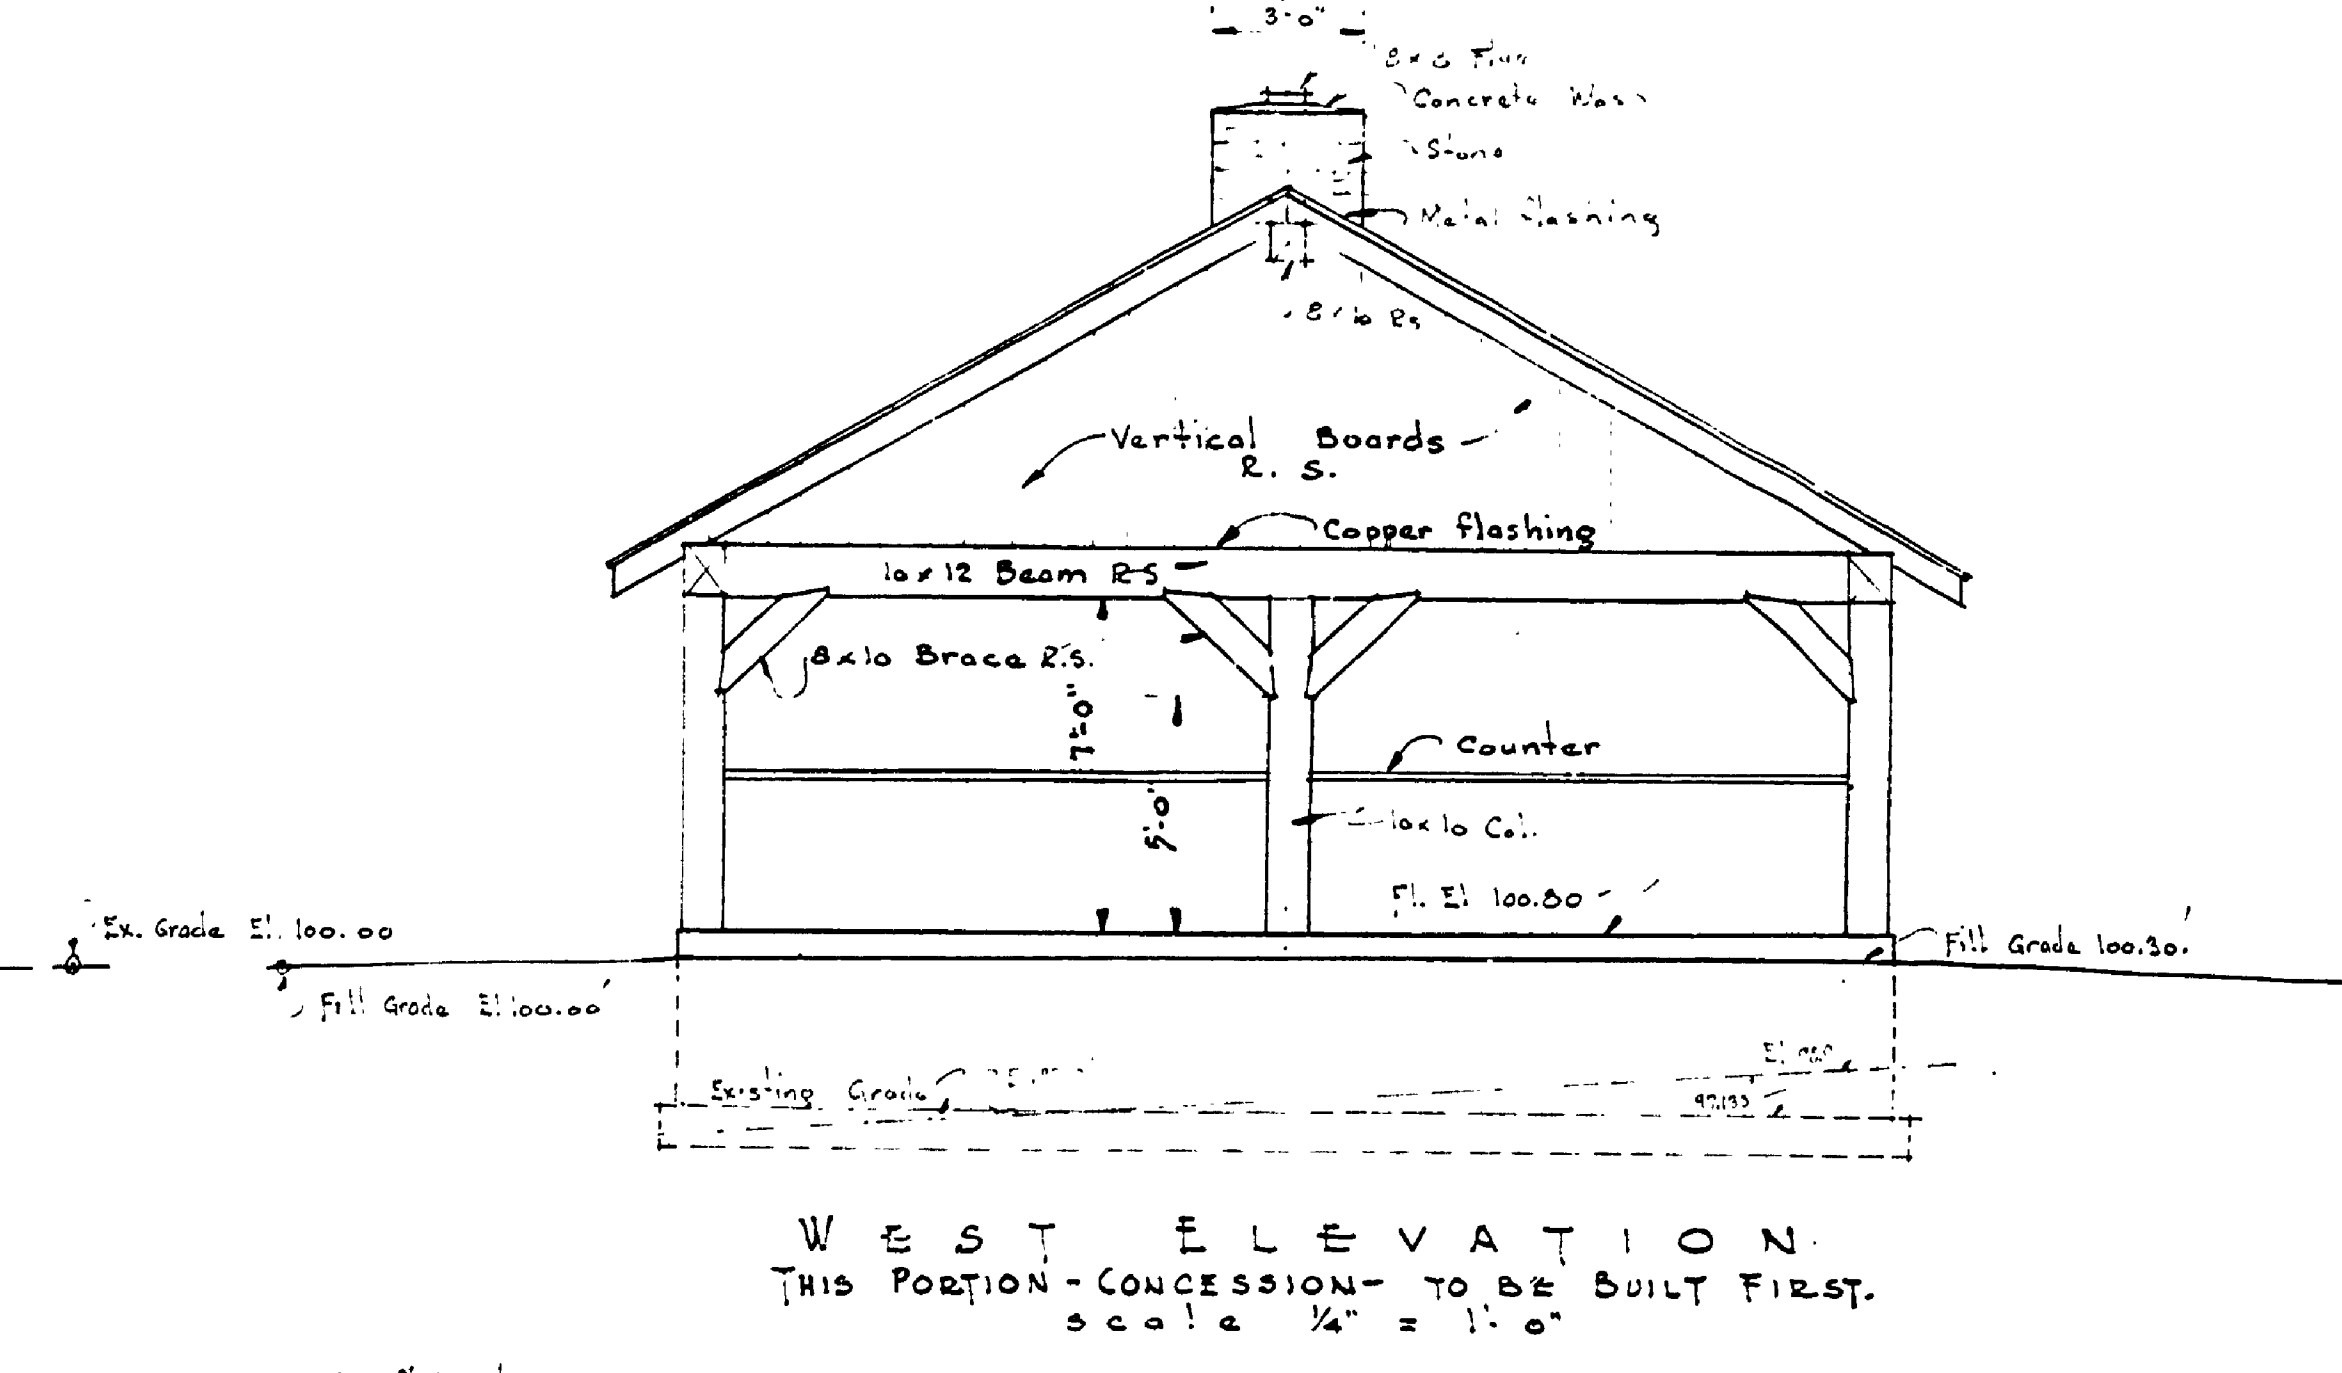 3'-0"
8 x 8 Flue
Concrete Wash
Stone
Metal flashing
8 x 10 RS
Vertical Boards
R. S.
Copper flashing
10 x 12 Beam R-S
8 x 10 Brace R.S.
7'-0"
Counter
5'-0"
10 x 10 Col.
Fl. El 100.80
Ex. Grade El. 100.00
Fill Grade 100.30'
Fill Grade El 100.00'
Existing Grade
El
97.133
WEST ELEVATION.
THIS PORTION - CONCESSION - TO BE BUILT FIRST.
scale 1/4" = 1'-0"